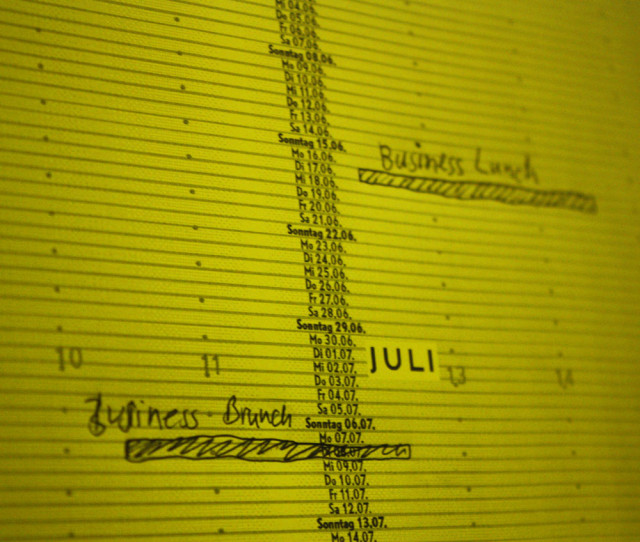 Do 05.06.
Fr 06.06.
Sa 07.06.
Sonntag 08.06.
Mo 09.06.
Di 10.06.
Mi 11.06.
Do 12.06.
Fr 13.06.
Sa 14.06.
Sonntag 15.06.
Mo 16.06.
Business Lunch
Di 17.06.
Mi 18.06.
Do 19.06.
Fr 20.06.
Sa 21.06.
Sonntag 22.06.
Mo 23.06.
Di 24.06.
Mi 25.06.
Do 26.06.
Fr 27.06.
Sa 28.06.
Sonntag 29.06.
Mo 30.06.
10 11 Di 01.07. JULI 13 14
Mi 02.07.
Do 03.07.
Fr 04.07.
Sa 05.07.
Business Brunch
Sonntag 06.07.
Mo 07.07.
Mi 09.07.
Do 10.07.
Fr 11.07.
Sa 12.07.
Sonntag 13.07.
Mo 14.07.